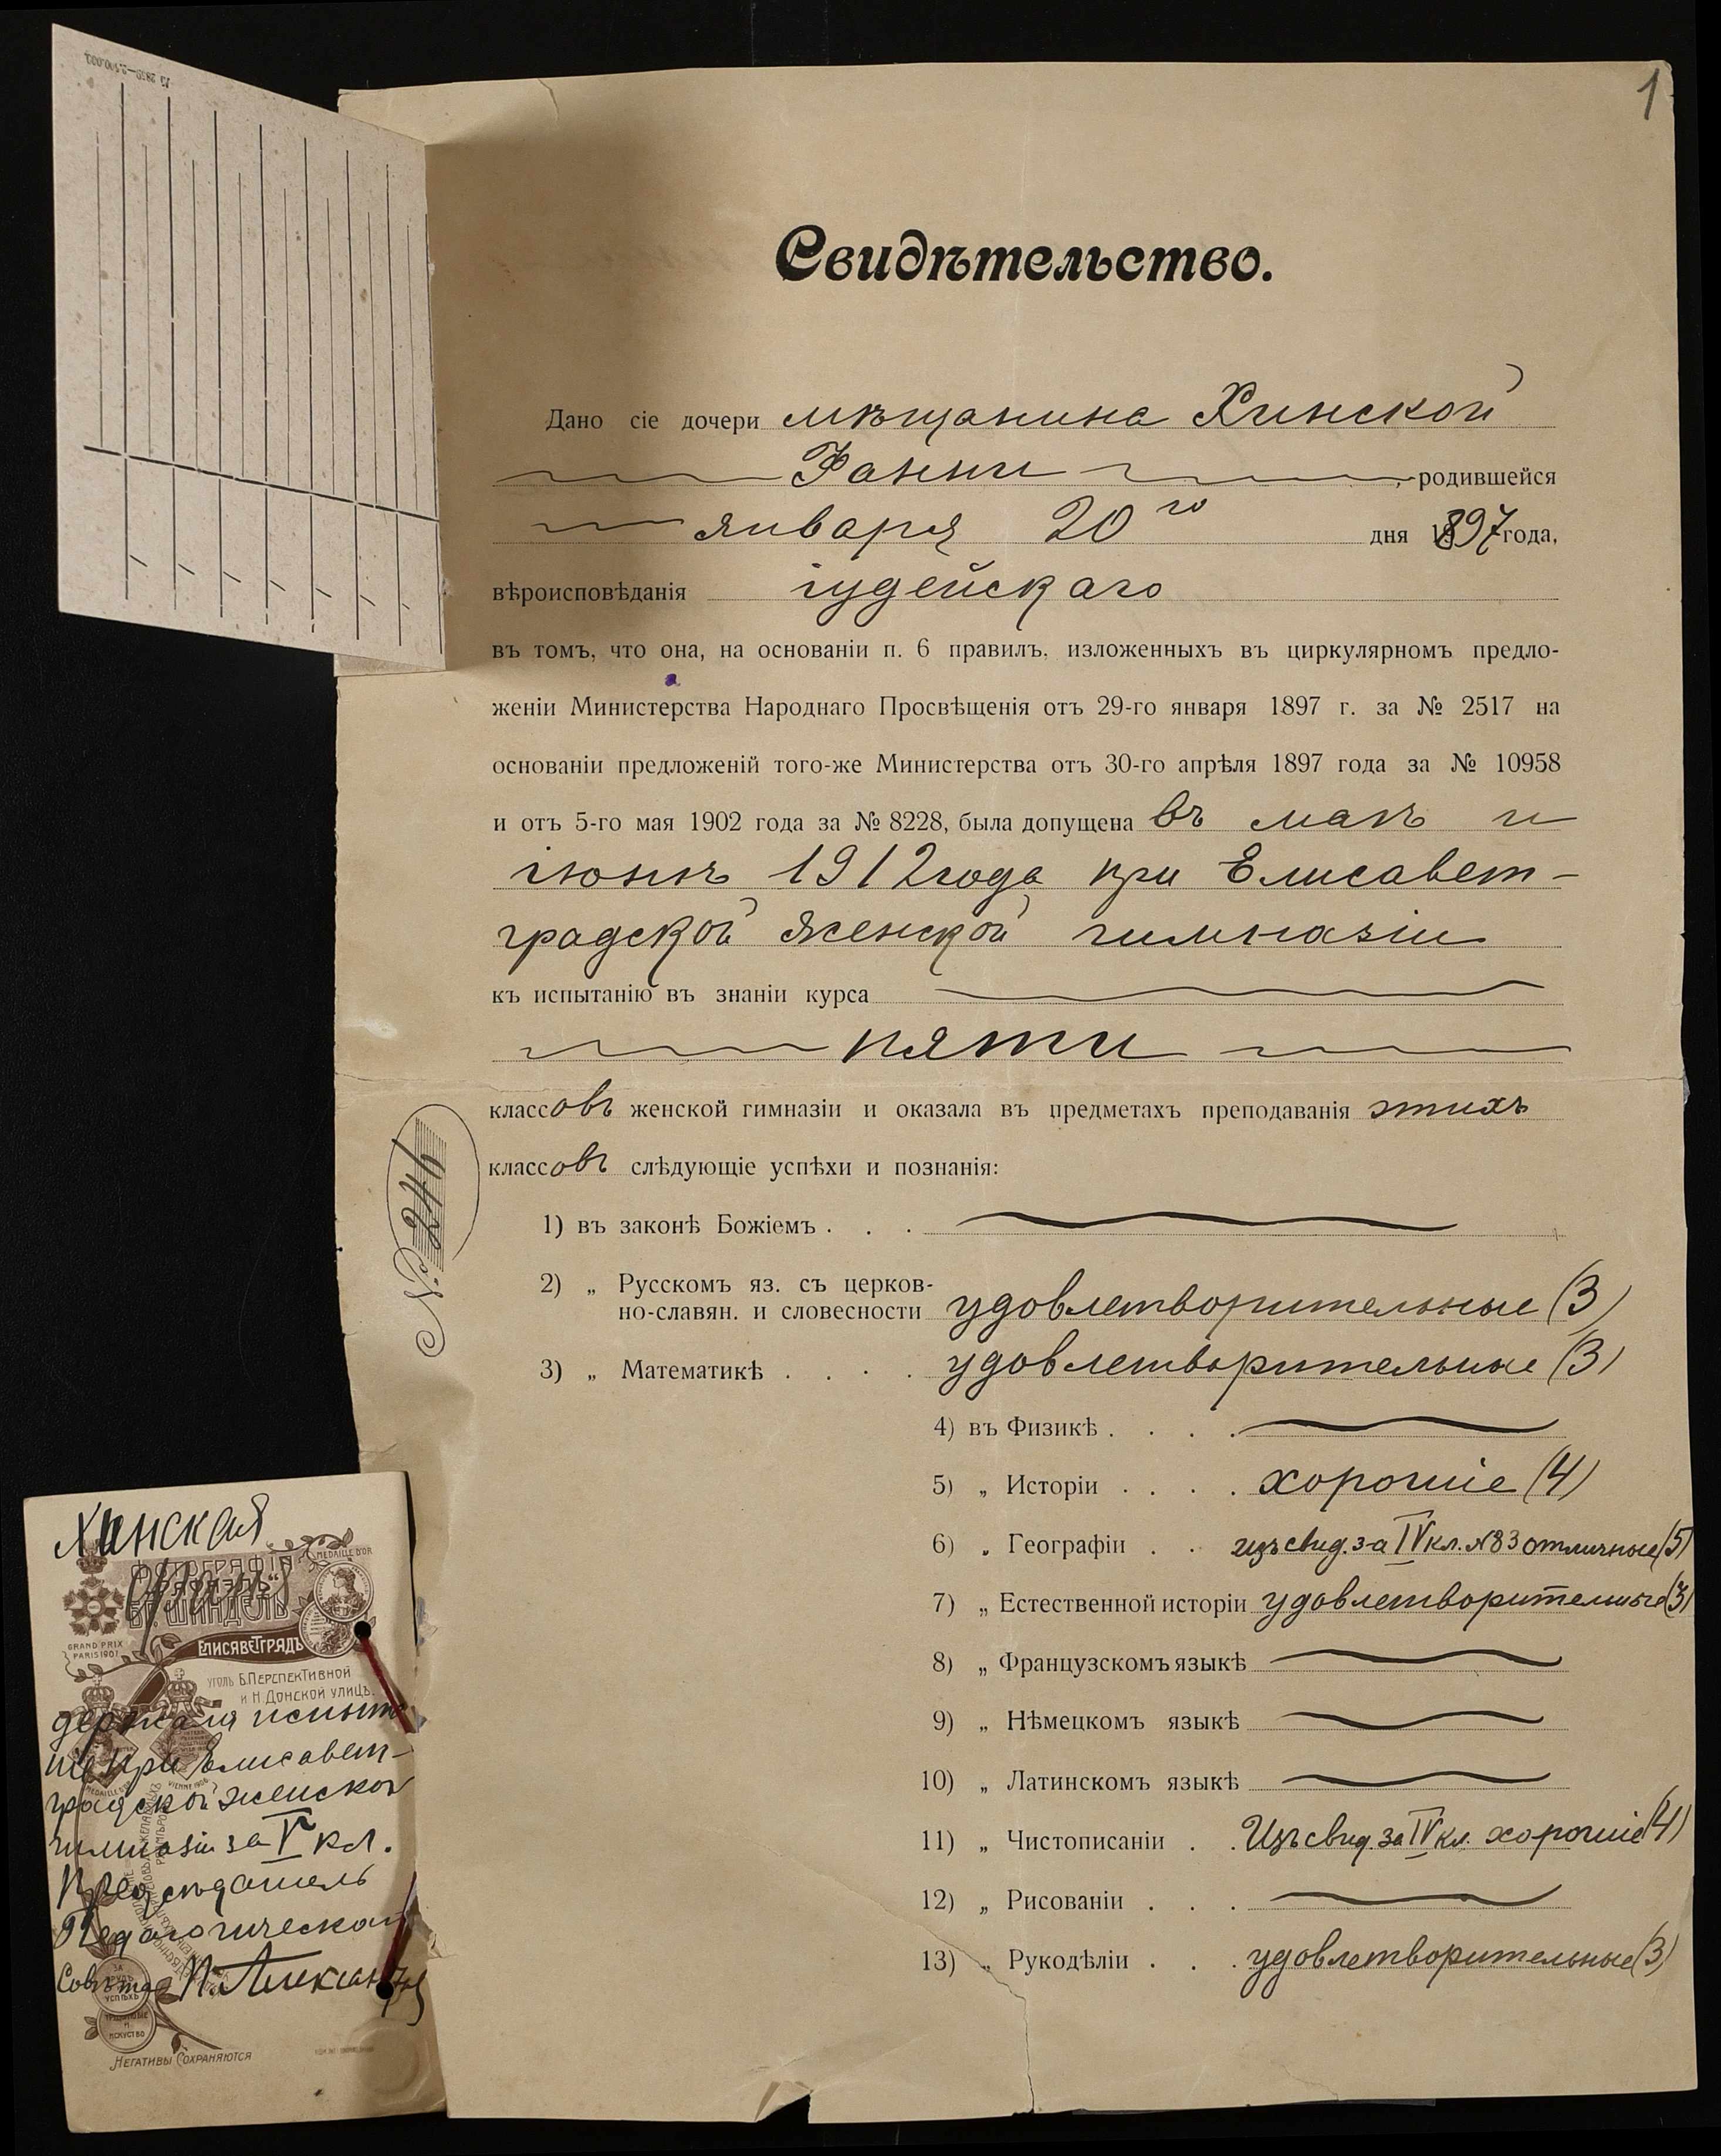 1
Свидѣтельство.
Дано сіе дочери мѣщанина Хинской
Фанни, родившейся
января 20го дня 1897 года,
вѣроисповѣданія іудейскаго
въ томъ, что она, на основаніи п. 6 правилъ, изложенныхъ въ циркулярномъ предло-
женіи Министерства Народнаго Просвѣщенія отъ 29-го января 1897 г. за № 2517 на
основаніи предложеній того-же Министерства отъ 30-го апрѣля 1897 года за № 10958
и отъ 5-го мая 1902 года за № 8228, была допущена въ маѣ и
іюнѣ 1912 года при Елисавет-
градской женской гимназіи
къ испытанію въ знаніи курса
пяти
классовъ женской гимназіи и оказала въ предметахъ преподаванія этихъ
классовъ слѣдующіе успѣхи и познанія:
1) въ законѣ Божіемъ . . .
2) „ Русскомъ яз. съ церков-
но-славян. и словесности удовлетворительные (3)
3) „ Математикѣ . . . . удовлетворительные (3)
4) въ Физикѣ . . . .
5) „ Исторіи . . . . хорошіе (4)
6) „ Географіи . . изъ свид. за IV кл. № 83 отличные (5)
7) „ Естественной исторіи удовлетворительные (3)
8) „ Французскомъ языкѣ
9) „ Нѣмецкомъ языкѣ
10) „ Латинскомъ языкѣ
11) „ Чистописаніи . . Изъ свид. за IV кл. хорошіе (4)
12) „ Рисованіи . . .
13) „ Рукодѣліи . . . удовлетворительные (3)
№
Хинская
ФОТОГРАФІЯ
ШИНДЕЛЬ
MEDAILLE D'OR
GRAND PRIX
PARIS 1901
ЕЛИСАВЕТГРАДЪ
УГОЛЪ Б. ПЕРСПЕКТИВНОЙ
И Н. ДОНСКОЙ УЛИЦЪ.
держала испыта
ніе при Елисавет-
градской женской
гимназіи за V кл.
Предсѣдатель
Педагогическаго
Совѣта
ЗА
ТРУДЪ
УСПѢХЪ
ИСКУССТВО
НЕГАТИВЫ СОХРАНЯЮТСЯ